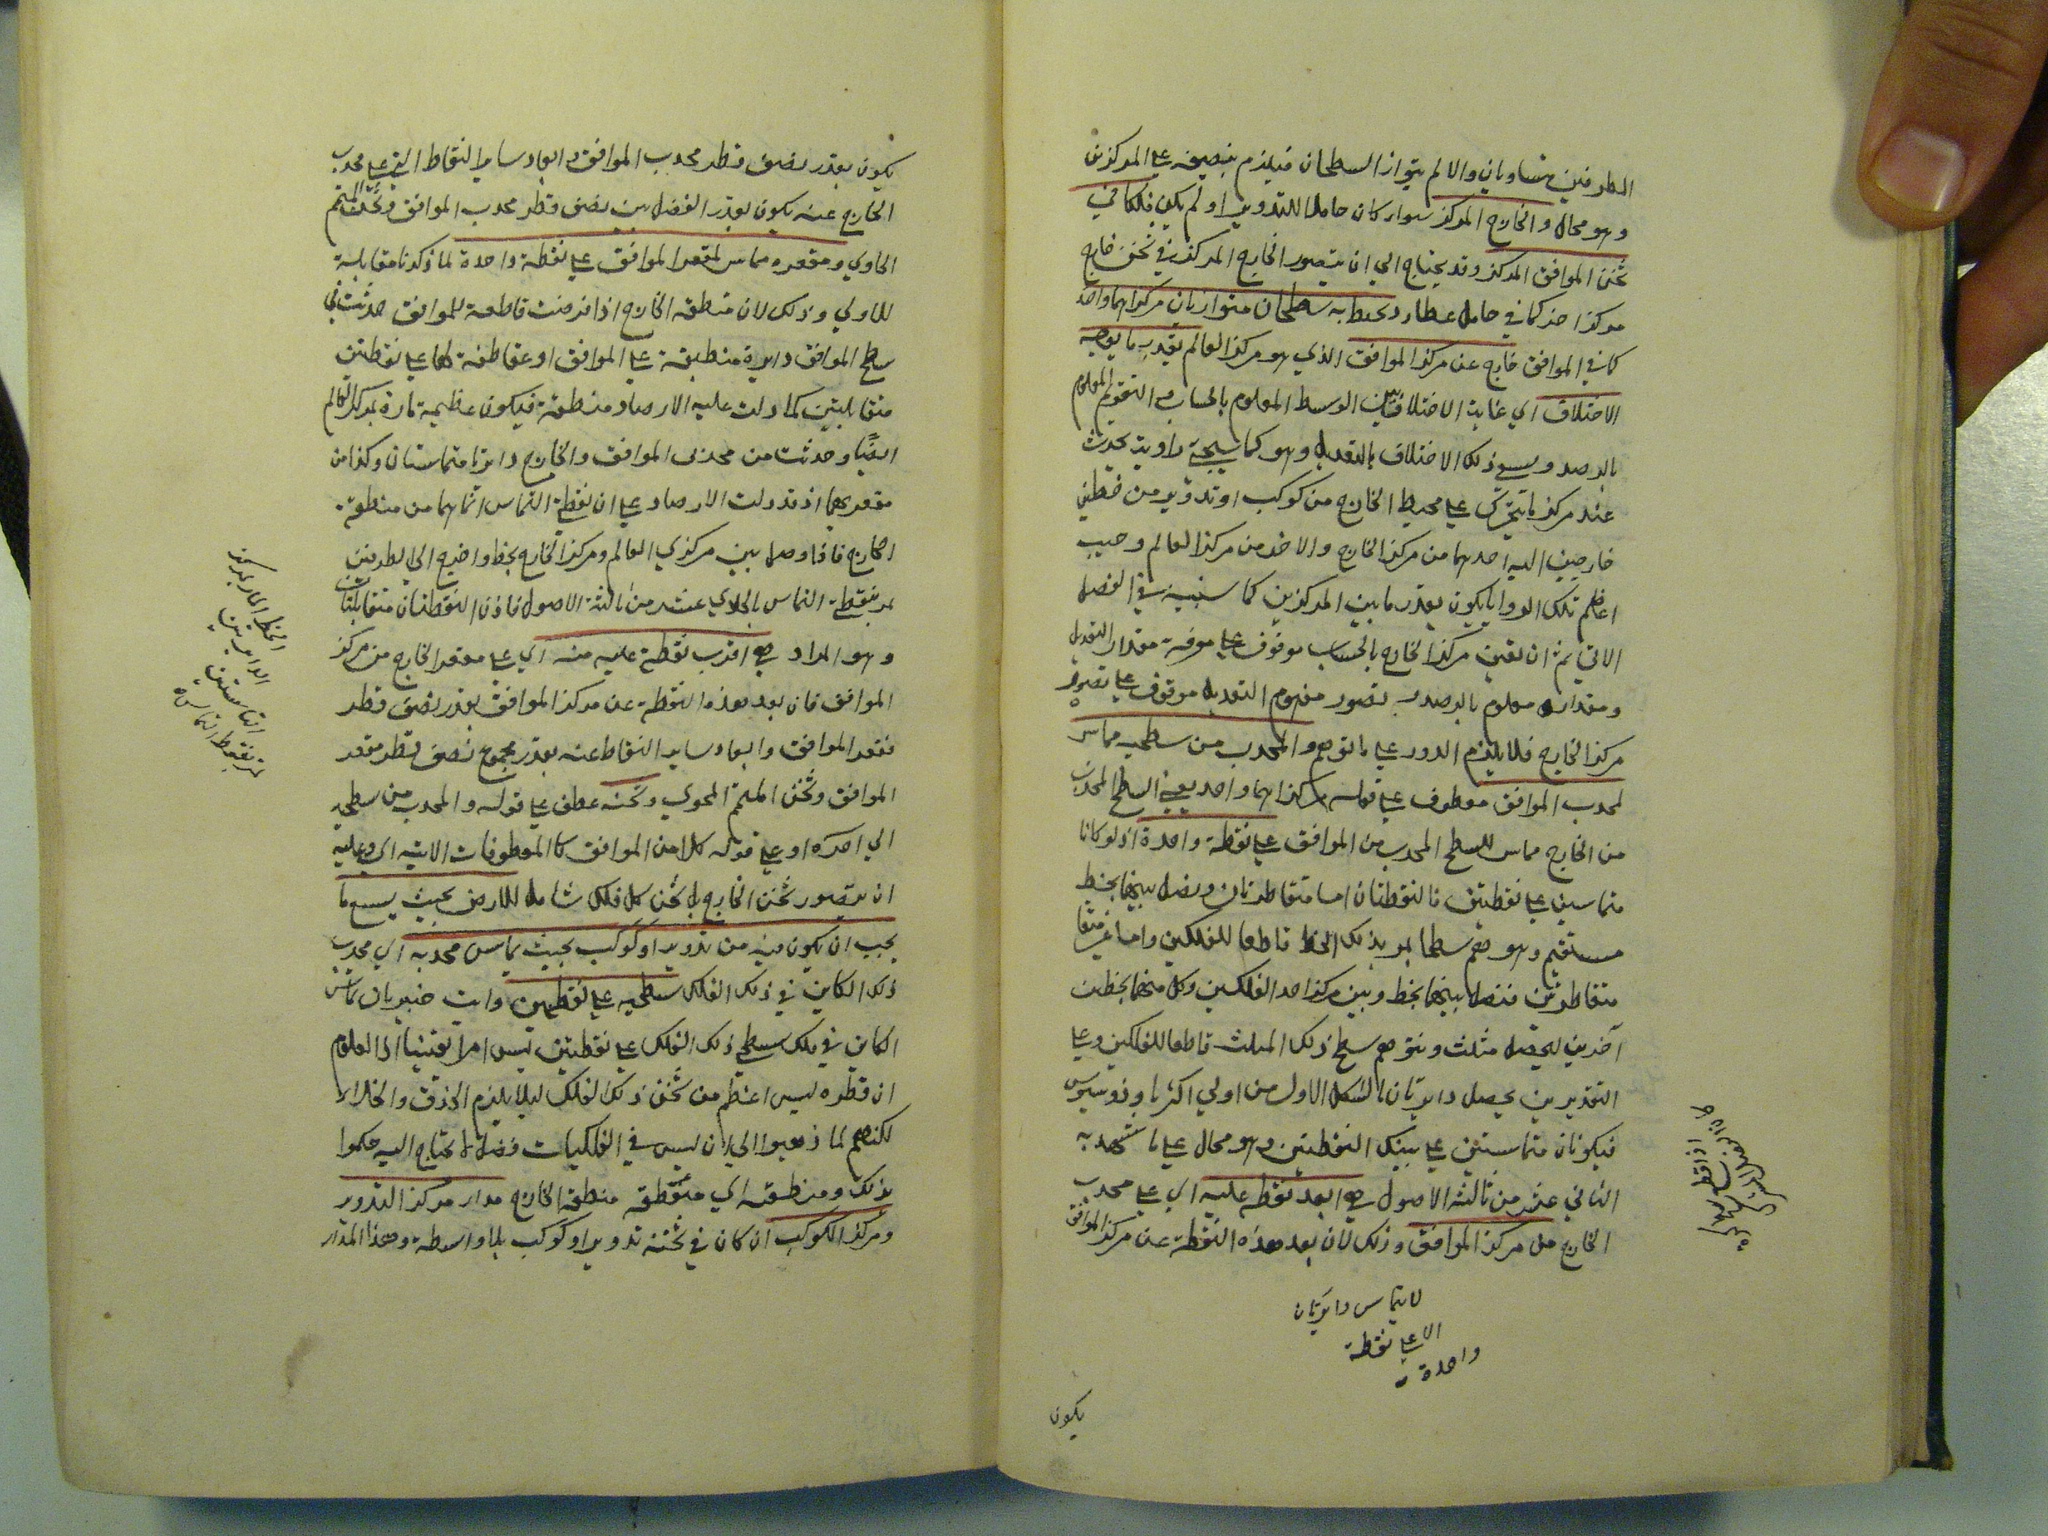 الطرفين متساويان والا لم يتواز السطحان فيلزم تنصيفه على المركزين
وهو محال والخارج المركز سواء كان حاملا للتدوير او لم يكن فلك في
ثخن الموافق المركز وقد يحتاج الى ان يتصور الخارج المركز في ثخن خارج
مركز اخر كما في حامل عطارد يحيط به سطحان متوازيان مركزاهما واحد
كما في الموافق خارج عن مركز الموافق الذي هو مركز العالم بقدر ما يوجبه
الاختلاف اي غاية الاختلاف بين الوسط المعلوم بالحساب والتقويم المعلوم
بالرصد ويسمى ذلك الاختلاف بالتعديل وهو كما سيجئ زاوية يحدث
عند مركز ما يتحرك على محيط الخارج من كوكب او تدوير من خطين
خارجين اليه احدهما من مركز الخارج والاخر من مركز العالم وجيب
اعظم تلك الزوايا يكون بقدر ما بين المركزين كما سنبينه في الفصل
الاتي ثم ان تعيين مركز الخارج بالحساب موقوف على معرفة مقدار التعديل
ومقداره معلوم بالرصد وتصور مفهوم التعديل موقوف على تصور
مركز الخارج فلا يلزم الدور على ما توهم والمحدب من سطحيه مماس
لمحدب الموافق معطوف على قوله مركزاهما واحد يعني السطح المحدب
من الخارج مماس للسطح المحدب من الموافق على نقطة واحدة اذ لو كانا
متماسين على نقطتين فالنقطتان اما متقاطرتان ونصل بينهما بخط
مستقيم وهو هم سطحا يمر بذلك الخط قاطعا للفلكين واما غير
متقاطرتين فنصل بينهما بخط وبين مركز احد الفلكين وكل منهما بخطين
آخرين ليحصل مثلث ونتوهم سطح ذلك المثلث قاطعا للفلكين وعلى
التقديرين يحصل دائرتان بالشكل الاول من اولى اكر ثاوذوسيوس
فيكونان متماستين على تينك النقطتين وهو محال على ما شهد به
الثاني عشر من ثالثة الاصول هي ابعد نقطة عليه اي على محدب
الخارج من مركز الموافق وذلك لان بعد هذه النقطة عن مركز الموافق
لا يتماس دائرتان
الا على نقطة
واحدة
يكون
يكون بقدر نصف قطر محدب الموافق وابعاد سائر النقاط التي على محدب
الخارج عنه يكون بقدر الفضل بين نصف قطر محدب الموافق وثخن المتمم
الحاوي ومقعره مماس لمقعر الموافق على نقطة واحدة لما ذكرنا مقابلة
للاولى وذلك لان منطقة الخارج اذا فرضت قاطعة للموافق حدثت في
سطح الموافق دائرة منطبقة على الموافق او مقاطعة لها على نقطتين
متقابلتين كما دلت عليه الارصاد منطقة فيكون عظيمة مارة بمركز العالم
ايضا وحدثت من محدبي الموافق والخارج دائرتا متماستان وكذا من
مقعريهما اذ قد دلت الارصاد على ان نقطة التماس انما هما من منطقة
الخارج فاذا وصل بين مركزي العالم ومركز الخارج بخط واخرج الى الطرفين
يمر بنقطة التماس بالحادي عشر من ثالثة الاصول فاذن النقطتان متقابلتان
وهو المراد هي اقرب نقطة عليه منه اي على مقعر الخارج من مركز
الموافق فان بعد هذه النقطة عن مركز الموافق بقدر نصف قطر
مقعر الموافق وابعاد سائر النقاط عنه بقدر مجموع نصف قطر مقعر
الموافق وثخن المتمم المحوي وثخنه عطف على قوله والمحدب من سطحيه
الى اخره او على قوله كلا من الموافق كالمعطوفات الاتية اي وعليه
ان يتصور ثخن الخارج بل ثخن كل فلك شامل للارض بحيث يسع ما
يجب ان يكون فيه من تدوير او كوكب بحيث يماس محدبه اي محدب
ذلك الكائن في ذلك الفلك سطحيه على نقطتين وانت خبير بان تماس
الكائن في فلك سطحي ذلك الفلك على نقطتين ليس امرا يقينيا اذ المعلوم
ان قطره ليس اعظم من ثخن ذلك الفلك ليلا يلزم الخرق والخلاء
لكنهم لما ذهبوا الى ان ليس في الفلكيات فضل لا يحتاج اليه حكموا
بذلك ومنطقته اي منطقة الخارج مدار مركز التدوير
ومركز الكوكب ان كان في ثخنه تدوير او كوكب بلا واسطة وهذا المدار
الخط المار بمركز
الدائرتين
المتماستين
يمر بنقطة التماس